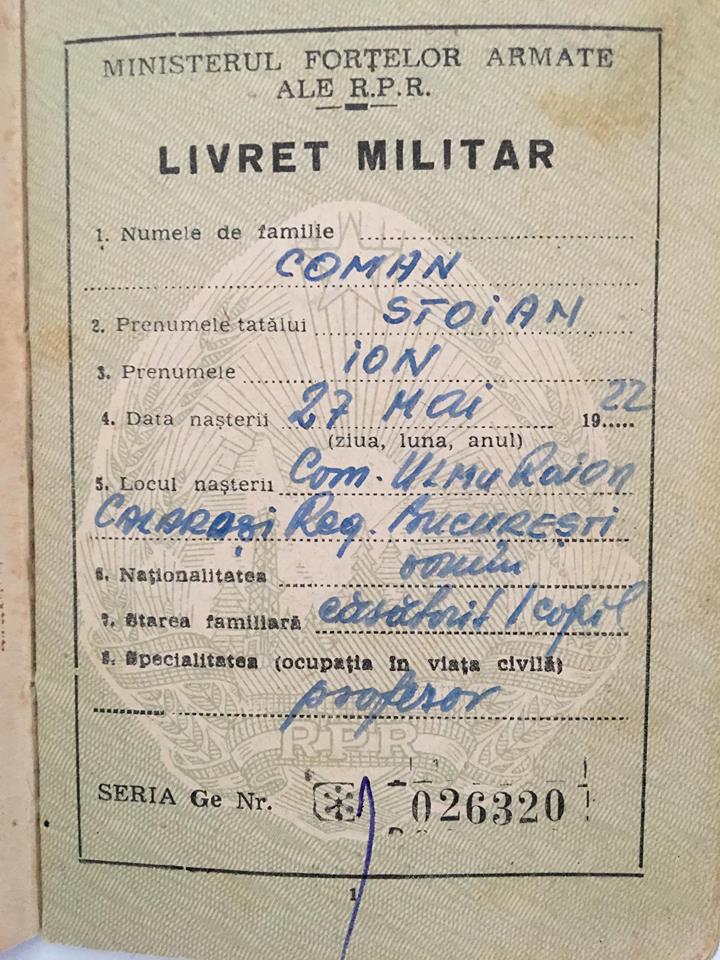 MINISTERUL FORȚELOR ARMATE
ALE R.P.R.
LIVRET MILITAR
1. Numele de familie
COMAN
2. Prenumele tatălui STOIAN
3. Prenumele ION
4. Data nașterii 27 MAI 1922
(ziua, luna, anul)
5. Locul nașterii Com. ULMU Raion
CALARAȘI Reg. BUCUREȘTI
6. Naționalitatea romîn
7. Starea familiară căsătorit 1 copil
8. Specialitatea (ocupația în viața civilă)
profesor
RPR
SERIA Ge Nr. 026320
1